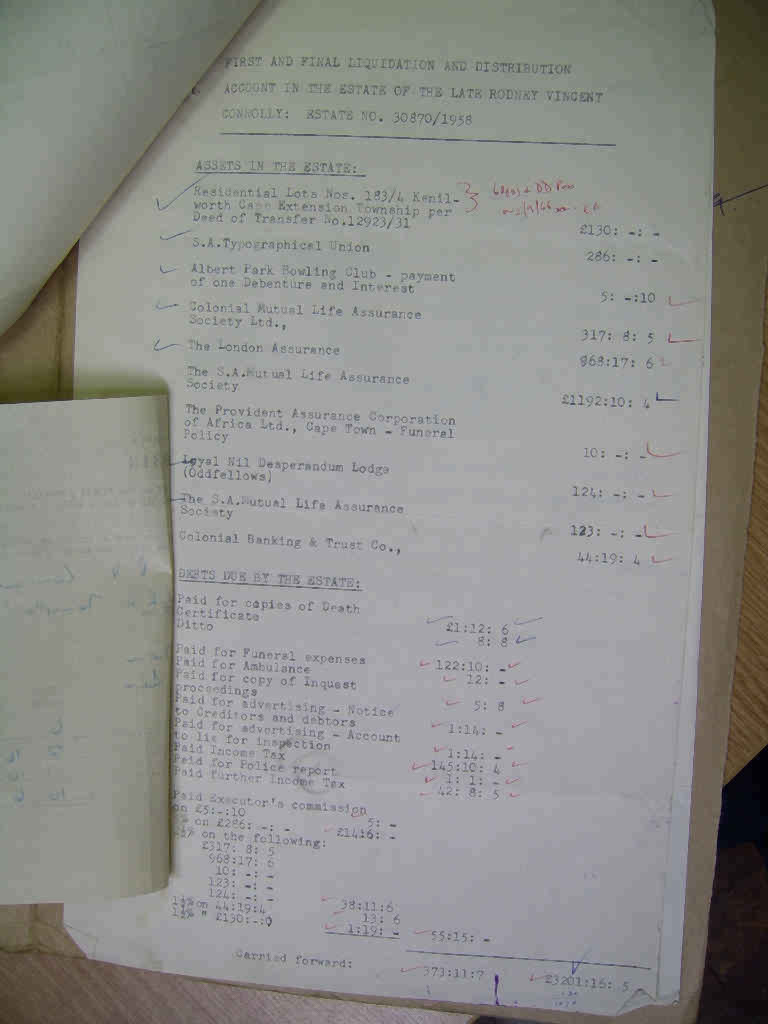 FIRST AND FINAL LIQUIDATION AND DISTRIBUTION
ACCOUNT IN THE ESTATE OF THE LATE RODNEY VINCENT
CONNOLLY: ESTATE NO. 30870/1958
ASSETS IN THE ESTATE:
Residential Lots Nos. 183/4 Kenil-
worth Cape Extension Township per
Deed of Transfer No.12923/31 £130: -: -
S.A.Typographical Union 286: -: -
Albert Park Bowling Club - payment
of one Debenture and Interest 5: -:10
Colonial Mutual Life Assurance
Society Ltd., 317: 8: 5
The London Assurance 968:17: 6
The S.A.Mutual Life Assurance
Society £1192:10: 4
The Provident Assurance Corporation
of Africa Ltd., Cape Town - Funeral
Policy 10: -: -
Loyal Nil Desperandum Lodge
(Oddfellows) 124: -: -
The S.A.Mutual Life Assurance
Society 123: -: -
Colonial Banking & Trust Co., 44:19: 4
DEBTS DUE BY THE ESTATE:
Paid for copies of Death
Certificate £1:12: 6
Ditto 8: 8
Paid for Funeral expenses 122:10: -
Paid for Ambulance 12: -
Paid for copy of Inquest
proceedings 5: 8
Paid for advertising - Notice
to Creditors and debtors 1:14: -
Paid for advertising - Account
to lie for inspection 1:14: -
Paid Income Tax 145:10: 4
Paid for Police report 1: 1: -
Paid further Income Tax 42: 8: 5
Paid Executor's commission
on £5:-:10 5: -
on £286: -: - £14:6: -
on the following:
£317: 8: 5
968:17: 6
10: -: -
123: -: -
124: -: - 38:11:6
1½% on 44:19:4 13: 6
1½% " £130:-:0 1:19: - 55:15: -
Carried forward: 373:11:7 £3201:16: 5